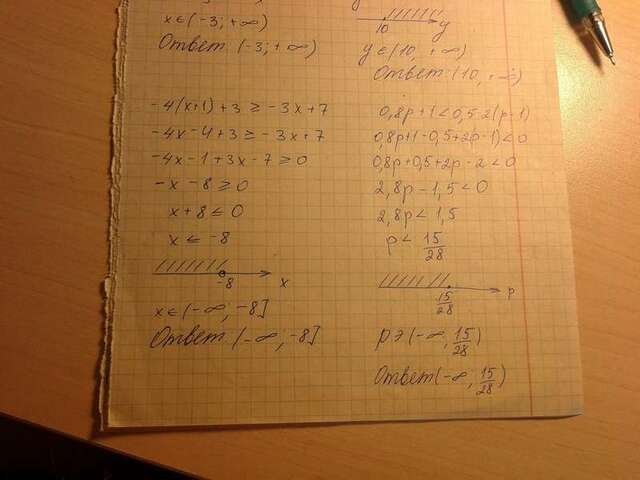 x∈(-3; +∞)
Ответ (-3; +∞)
-4(x+1)+3 ≥ -3x+7
-4x-4+3 ≥ -3x+7
-4x-1+3x-7 ≥ 0
-x-8 ≥ 0
x+8 ≤ 0
x ≤ -8
-8 x
x∈(-∞; -8]
Ответ (-∞; -8]
10 y
y∈(10, +∞)
Ответ (10, +∞)
0,8p+1<0,5-2(p-1)
0,8p+1-0,5+2p-1)<0
0,8p+0,5+2p-2<0
2,8p-1,5<0
2,8p<1,5
p< 15/28
15/28 p
p∋(-∞, 15/28)
Ответ (-∞, 15/28)